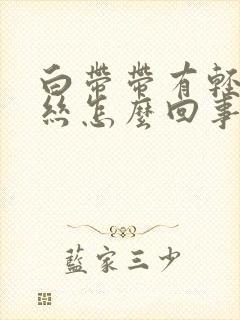 白帶帶有輕
絲怎麼回事
藍家三少